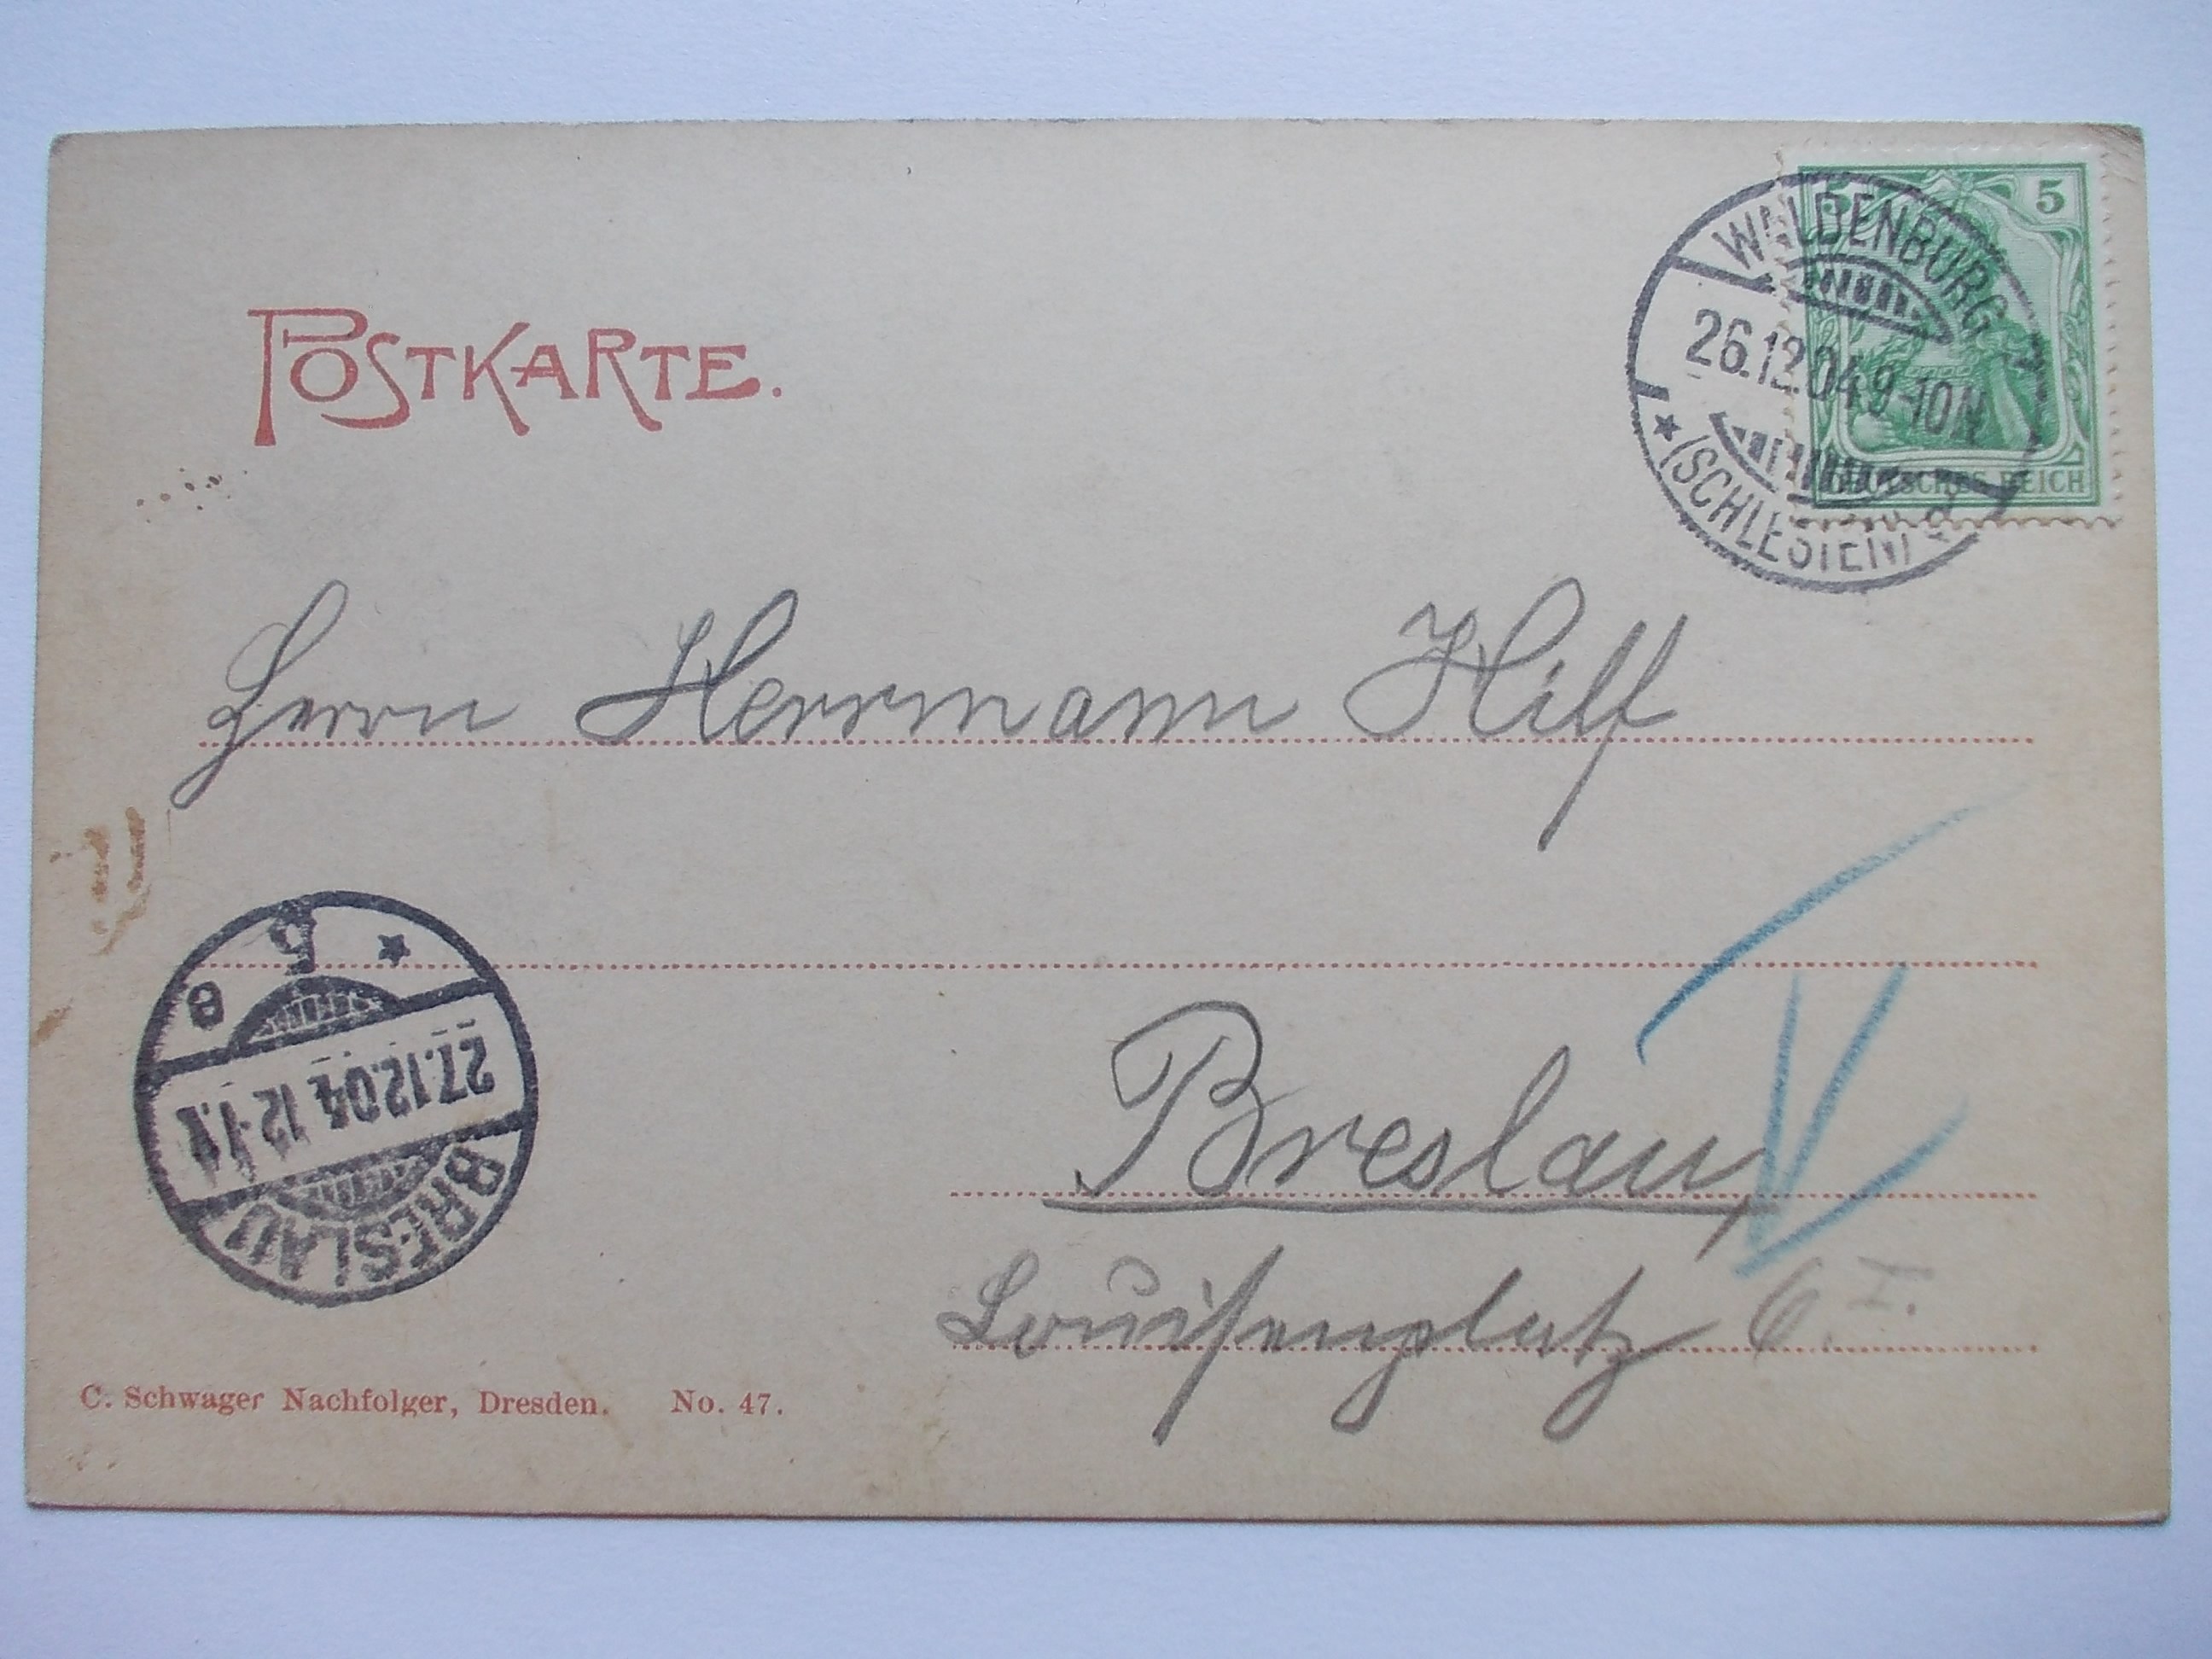 POSTKARTE.
5 5
WALDENBURG
26.12.04 9-10N
* (SCHLESIEN)
DEUTSCHES REICH
Herrn Herrmann Hilf
V
* 5 e
27.12.04 12-1N
BRESLAU
Breslau,
Louisenplatz 6. I.
C. Schwager Nachfolger, Dresden. No. 47.